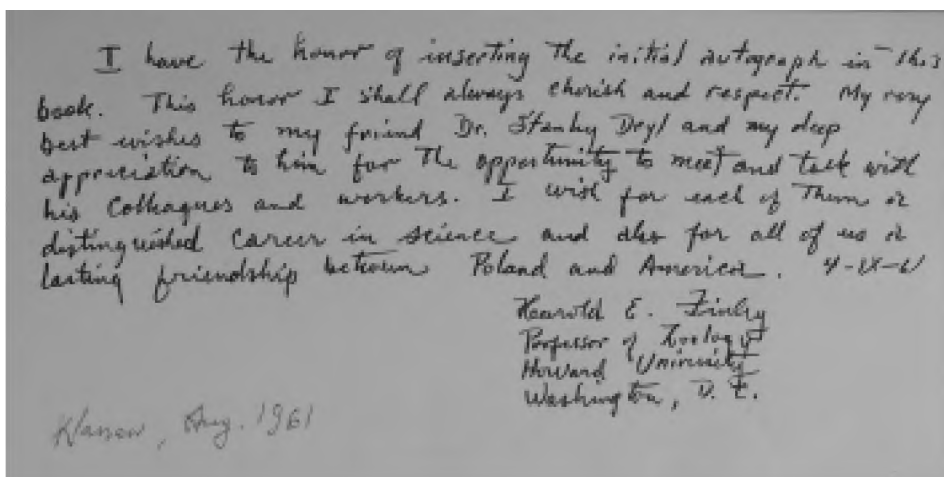 I have the honor of inserting the initial autograph in this
book. This honor I shall always cherish and respect. My very
best wishes to my friend Dr. Stanley Dryl and my deep
appreciation to him for the opportunity to meet and talk with
his colleagues and workers. I wish for each of them a
distinguished career in science and also for all of us a
lasting friendship between Poland and America. 4-IX-61
Harold E. Finley
Professor of Zoology
Howard University
Washington, D. C.
Warsaw, Aug. 1961